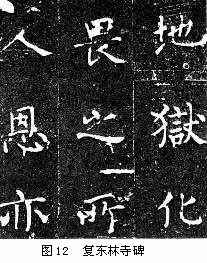 地獄化
畏之所
人恩亦
图12 复东林寺碑